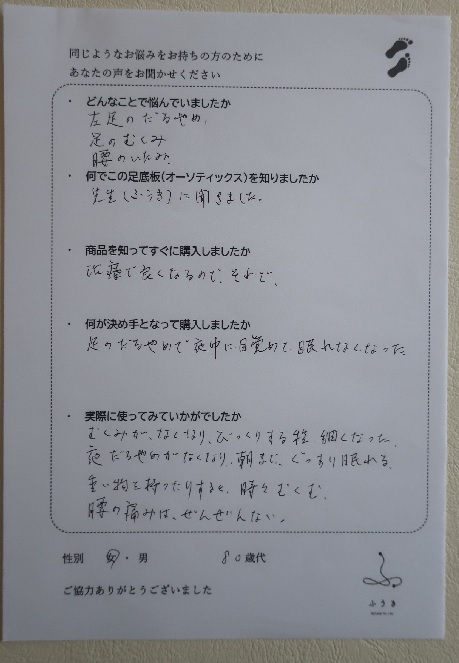 同じようなお悩みをお持ちの方のために
あなたの声をお聞かせください
・ どんなことで悩んでいましたか
左足のだるやめ、
足のむくみ
腰のいたみ、
・ 何でこの足底板(オーソティックス)を知りましたか
先生(ふうき)に聞きました。
・ 商品を知ってすぐに購入しましたか
治療で良くなるので、それで、
・ 何が決め手となって購入しましたか
足のだるやめで夜中に目覚めて眠れなくなった
・ 実際に使ってみていかがでしたか
むくみが、なくなり、びっくりする程 細くなった、
夜だるやめがなくなり、朝まで、ぐっすり眠れる、
重い物を持ったりすると、時々むくむ、
腰の痛みは、ぜんぜんない。
性別 女・男 80歳代
ご協力ありがとうございました
ふうき